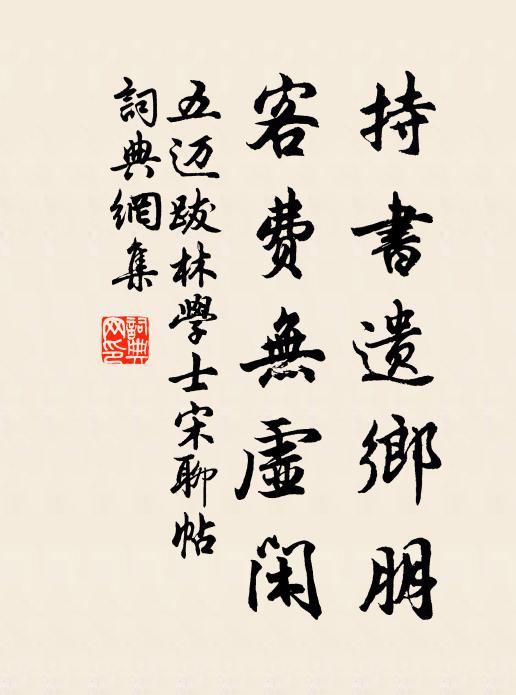 持書遺鄉朋
客費無虛閑
五迈跋林學士宋聊帖
詞典網集
詞典网印